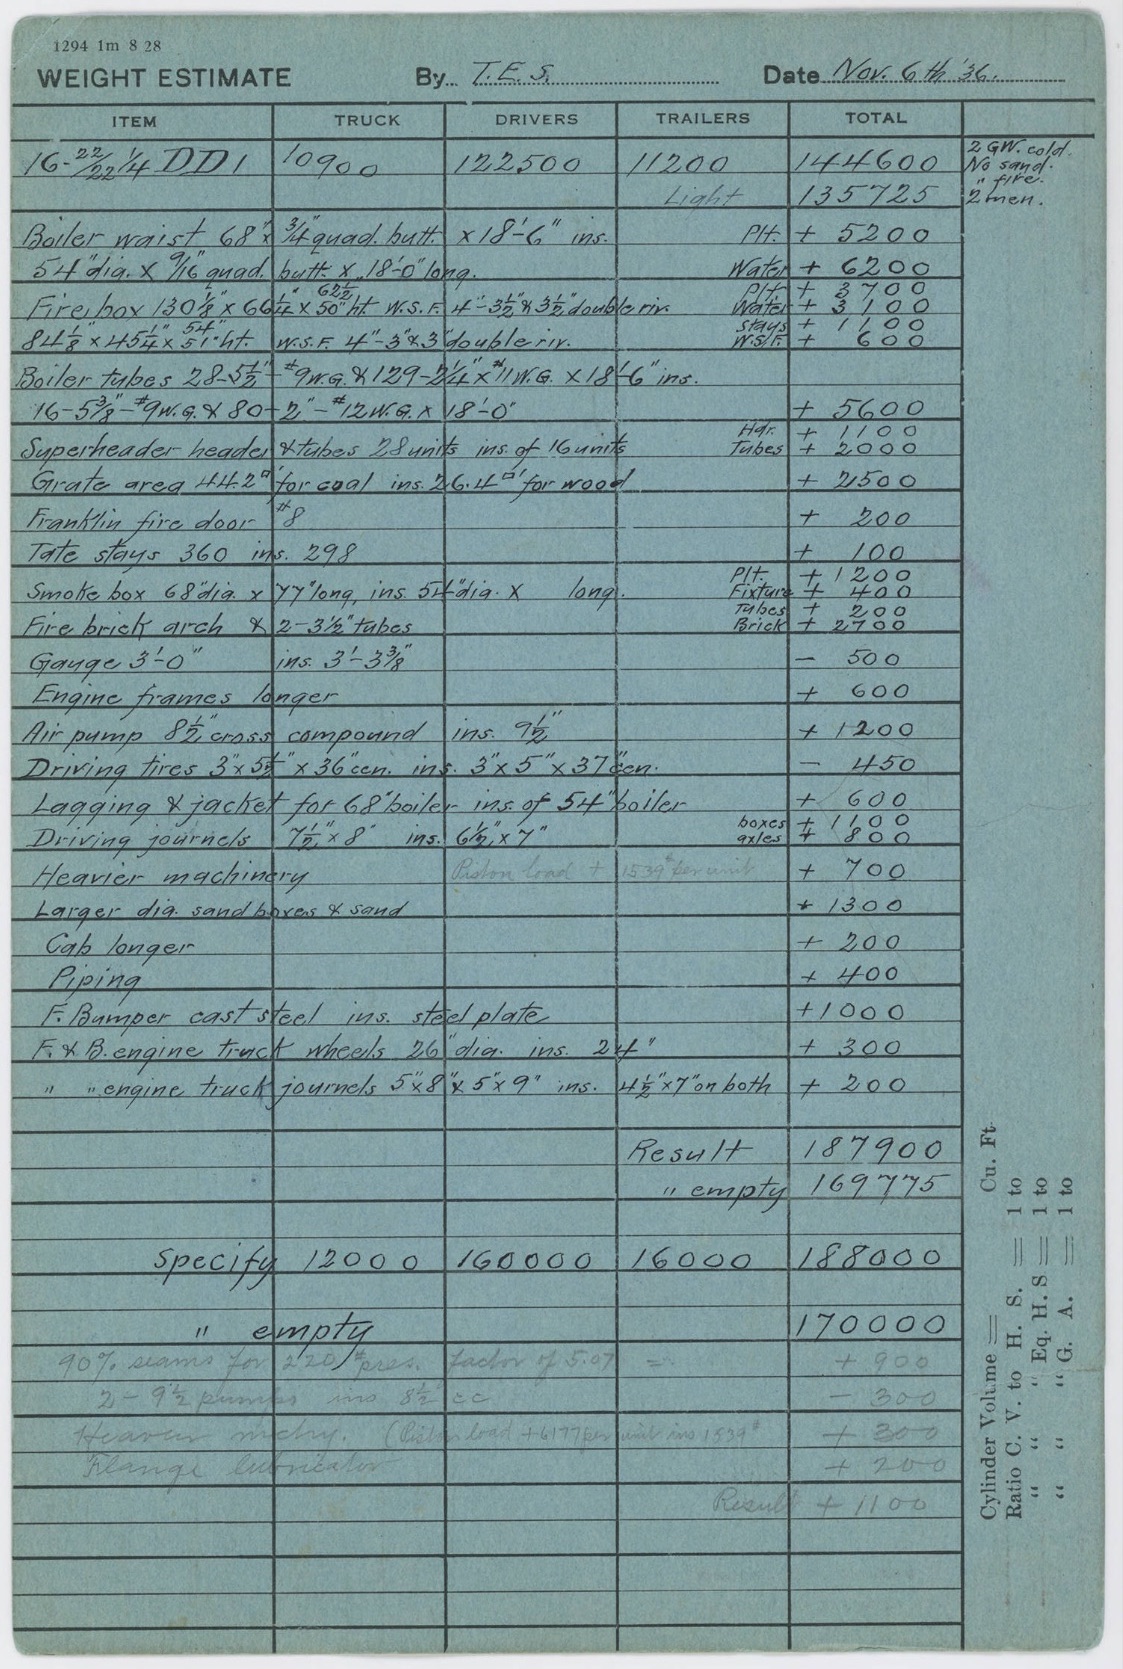 1294 1m 8 28
WEIGHT ESTIMATE By T.E.S. Date Nov. 6th '36.
ITEM TRUCK DRIVERS TRAILERS TOTAL
16-22/22 1/4 DD1 10900 122500 11200 144600 2 GW. cold.
No sand.
" fire.
Light 135725 2 men.
Boiler waist 68" x 3/4" quad. butt. x 18'-6" ins. Plt. + 5200
54" dia. x 9/16" quad. butt. x 18'-0" long. Water + 6200
Plt + 3700
Fire box 130 1/8" x 66 1/4 x 62 1/2 50" ht. W.S.F. 4"-3 1/2" & 3 1/2" double riv. Water + 3100
Stays + 1100
84 1/8" x 45 1/4" x 54" 51" ht. W.S.F. 4"-3" & 3" double riv. W.S.F. + 600
Boiler tubes 28-5 1/2"-#9 W.G. & 129-2 1/4" x #11 W.G. x 18'-6" ins.
16-5 3/8"-#9 W.G. & 80-2"-#12 W.G. x 18'-0" + 5600
Hdr. + 1100
Superheader header & tubes 28 units ins. of 16 units Tubes + 2000
Grate area 44.2□' for coal ins. 26.4□' for wood + 2500
Franklin fire door #8 + 200
Tate stays 360 ins. 298 + 100
Plt. + 1200
Smoke box 68" dia. x 77" long, ins. 54" dia. x long. Fixture + 400
Tubes + 200
Fire brick arch & 2-3 1/2" tubes Brick + 2700
Gauge 3'-0" ins. 3'-3 3/8" - 500
Engine frames longer + 600
Air pump 8 1/2" cross compound ins. 9 1/2" + 1200
Driving tires 3" x 5 1/2" x 36" cen. ins. 3" x 5" x 37" cen. - 450
Lagging & jacket for 68" boiler ins. of 54" boiler + 600
boxes + 1100
Driving journels 7 1/2" x 8" ins. 6 1/2" x 7" axles + 800
Heavier machinery Piston load + 1539# per unit + 700
Larger dia. sand boxes & sand + 1300
Cab longer + 200
Piping + 400
F. Bumper cast steel ins. steel plate + 1000
F. & B. engine truck wheels 26" dia. ins. 24" + 300
" " engine truck journels 5" x 8" & 5" x 9" ins. 4 1/2" x 7" on both + 200
Result 187900
" empty 169775
Specify 12000 160000 16000 188000
" empty 170000
90% seams for 220# pres. factor of 5.07 = + 900
2 - 9 1/2 pumps ins 8 1/2" cc - 300
Heavier mchy. (Piston load + 6177 per unit ins 1539# + 300
Flange lubricator + 200
Result + 1100
Cylinder Volume = Cu. Ft.
Ratio C. V. to H. S. = 1 to
" " " Eq. H. S = 1 to
" " " G. A. = 1 to